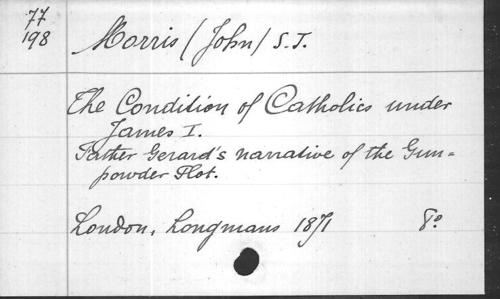 77
198
Morris (John) S.J.
The Condition of Catholics under
James I.
Father Gerard's narrative of the Gun=
powder Plot.
London, Longmans 1871 8º